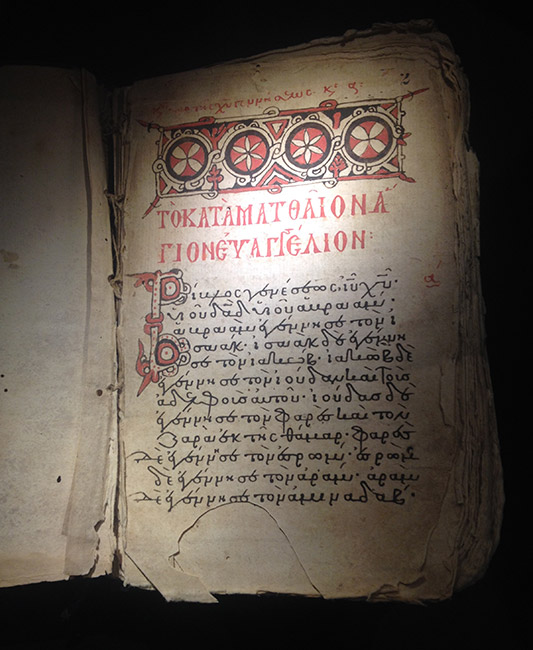 της χῦ γεννήσεως
ΤΟ ΚΑΤΑ ΜΑΤΘΑΙΟΝ Α
ΓΙΟΝ ΕΥΑΓΓΕΛΙΟΝ:
α
Βίβλος γενέσεως ἰῦ χῦ·
υἱοῦ δᾱδ υἱοῦ ἀβρααμ·
ἀβρααμ ἐγέννησε τὸν ἰ
σαακ· ἰσαακ δὲ ἐγέννη
σε τὸν ἰακώβ· ἰακὼβ δὲ
ἐγέννησε τὸν ἰούδαν καὶ τοὺς
ἀδελφοὺς αὐτοῦ· ἰούδας δὲ
ἐγέννησε τὸν φαρὲς καὶ τὸν
ζαρὰ ἐκ τῆς θάμαρ· φαρὲς
δὲ ἐγέννησε τὸν ἐσρώμ· ἐσρὼμ
δὲ ἐγέννησε τὸν ἀράμ· ἀρὰμ
δὲ ἐγέννησε τὸν ἀμιναδάβ·